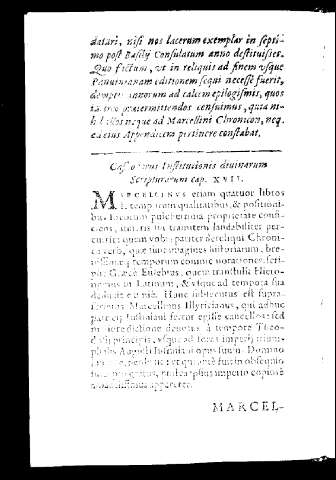 datari, nisi nos lacerum exemplar in septi-
mo post Basilij Consulatum anno destituisset.
Quo factum, vt in reliquis ad finem vsque
Panuinianam editionem sequi necesse fuerit,
demptis annorum ad calcem epilogismis, quos
praetermittendos censuimus, quia ni-
neque ad Marcellini Chronicon, neq.
ad eius Appendicem pertinere constabat.
Institutionis diuinarum
Scripturarum cap. XVII.
MARCELLINVS etiam quatuor libros
temporum qualitatibus, & positioni-
bus locorum pulcherrima proprietate confi-
ciens, itineris sui tramitem laudabiliter per-
currit; quem vobis pariter dereliqui. Chroni-
ca verò, quae sunt imagines historiarum, bre-
uissimaeq; temporum commemorationes scri-
psit Graecè Eusebius, quem transtulit Hiero-
nymus in Latinum, & vsque ad tempora sua
deduxit eximiè. Hunc subsecutus est supra-
Marcellinus Illyricianus, qui adhuc
patricij Iustiniani fertur egisse cancellos: sed
meliore conditione deuotus, à tempore Theo-
dosij principis vsque ad fores imperij trium-
phalis Augusti Iustiniani opus suum, Domino
qui ante fuit in obsequio
gratus, postea ipsius imperio copiosè
appareret.
MARCEL-